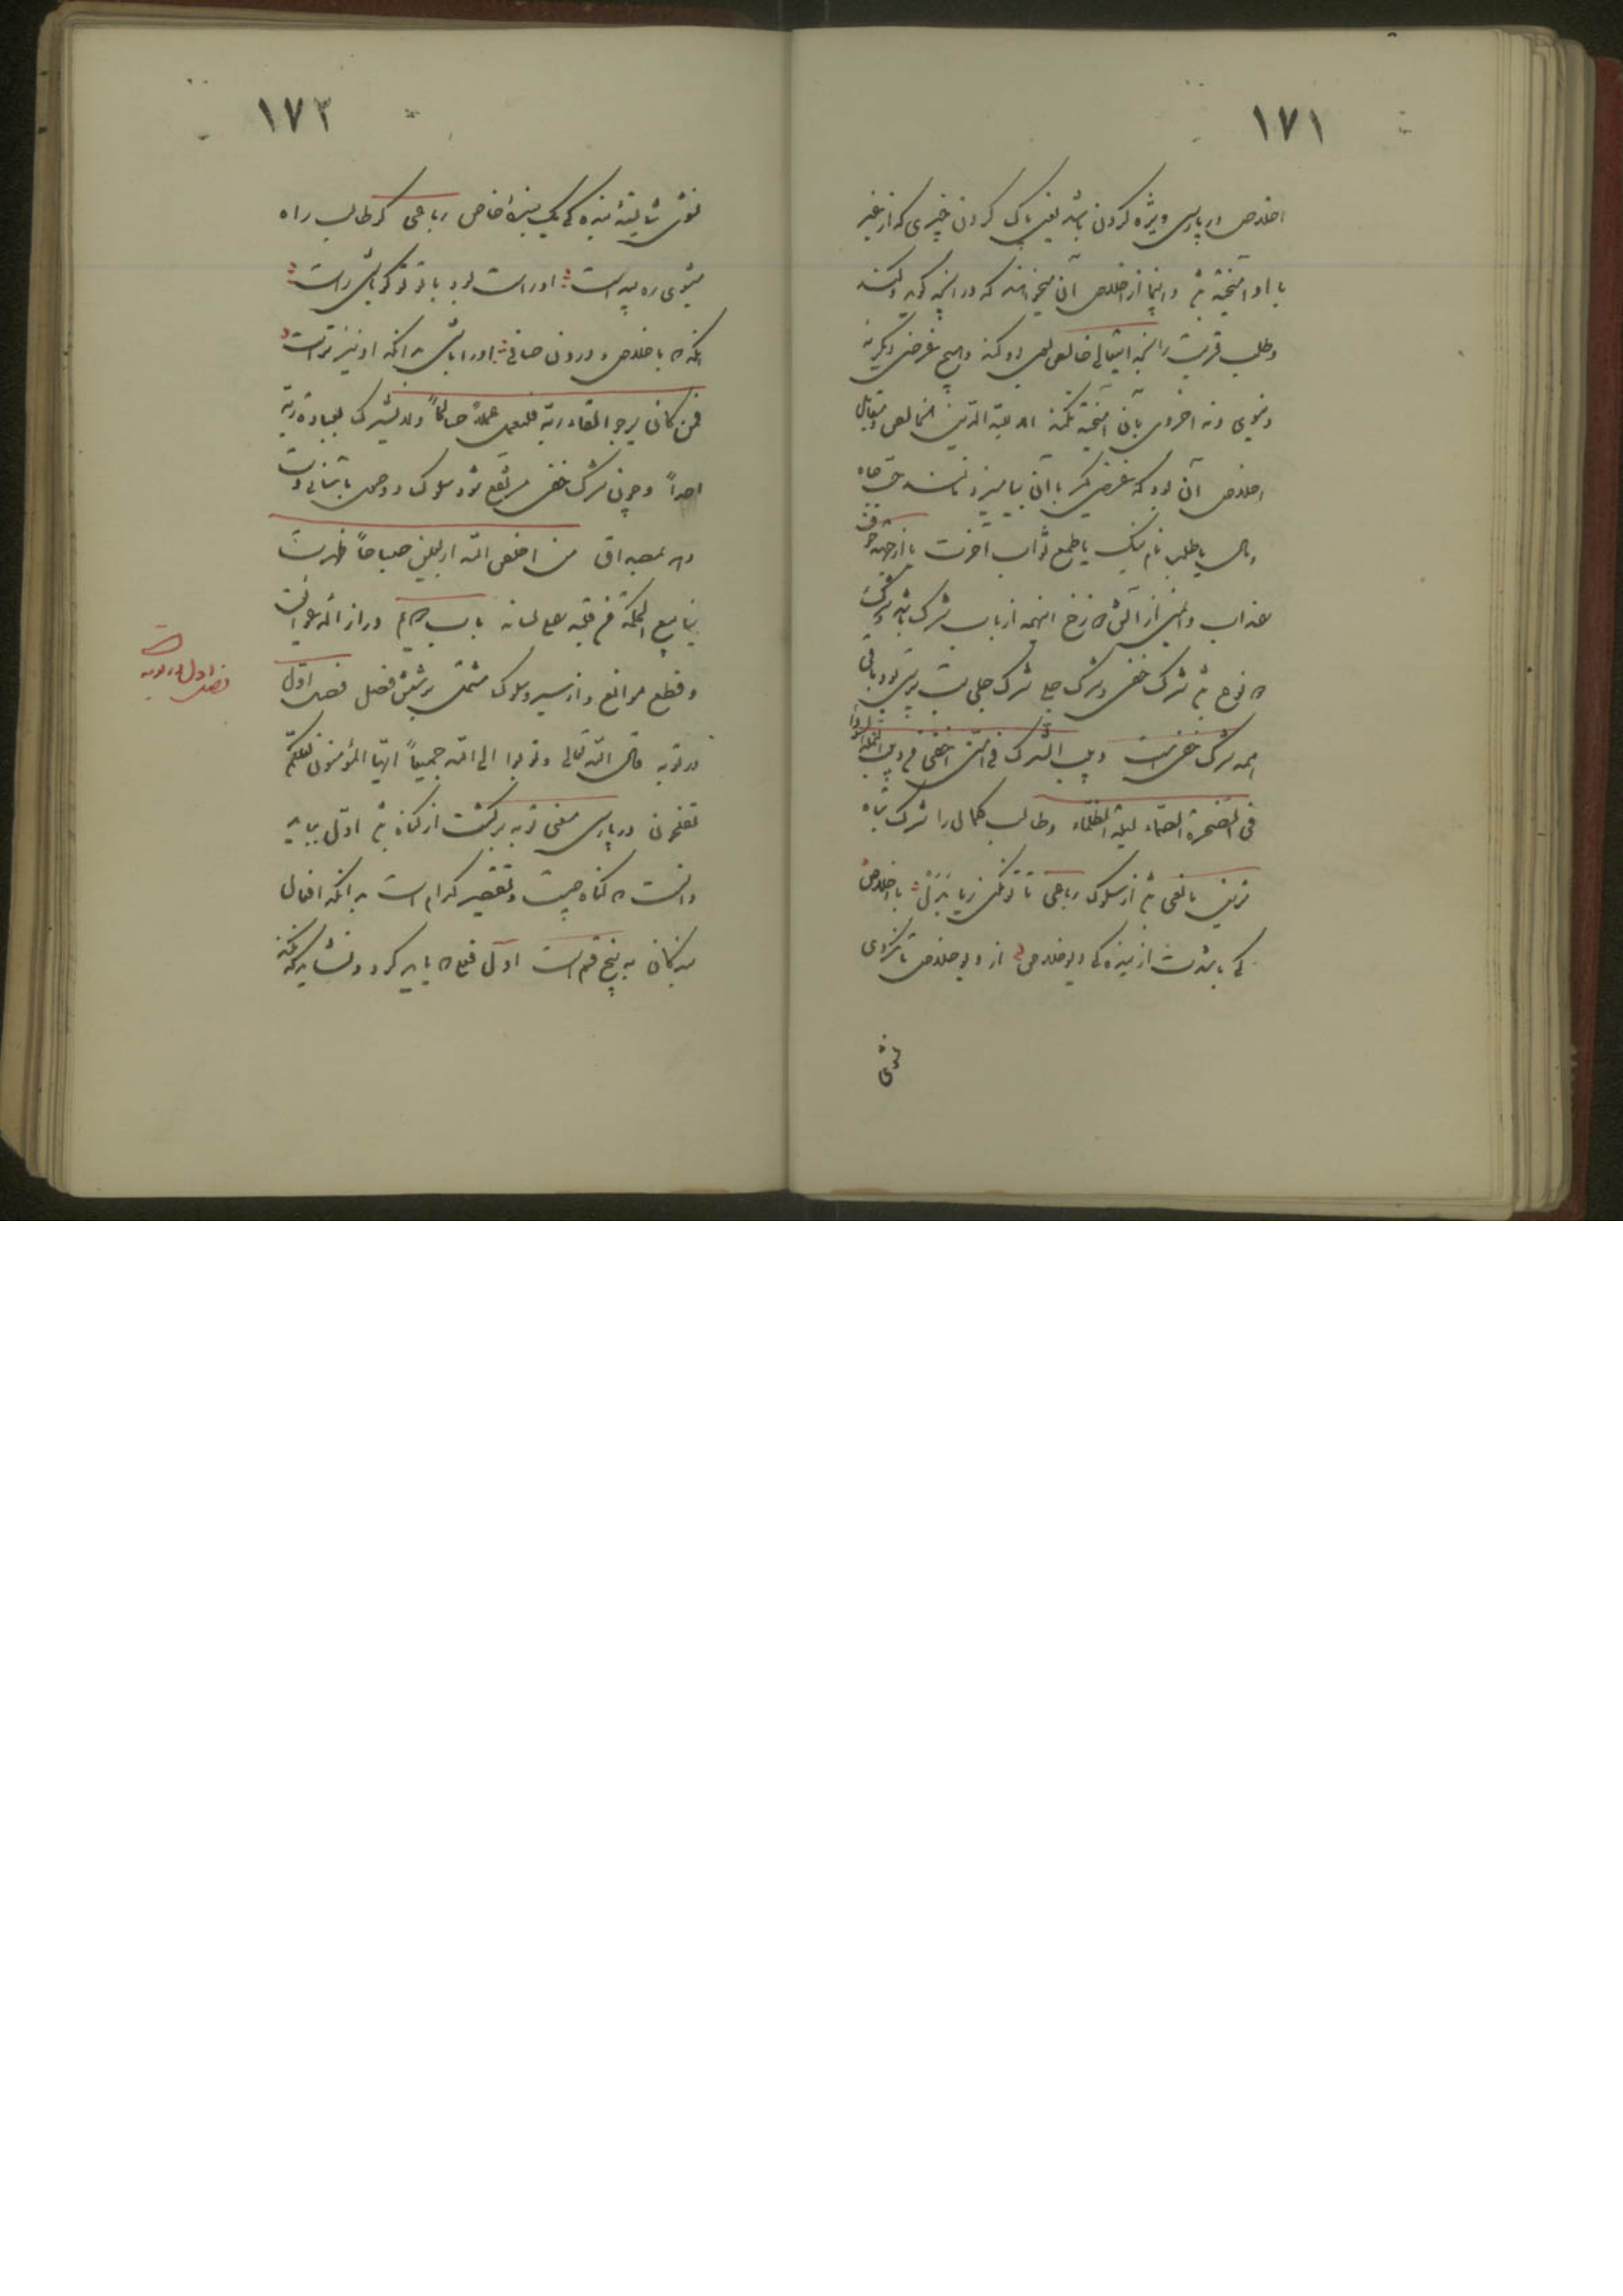 ۱۷۱
اخلاص در پارسی ویژه کردن باشد یعنی پاک کردن چیزی که از غیر
با او آمیخته باشد و اینجا از اخلاص آن میخواهند که در آنچه گوید و کند
و طلب قربت را بخدایتعالی خالص بود کند و هیچ غرض دیگر نه
دنیوی و نه اخروی بآن آمیخته نکند الا لله الدین الخالص و مقابل
اخلاص آن بود که غرض دیگر با آن بیامیزد مانند حب جاه
و مال یا طلب نام نیک یا طمع ثواب آخرت یا از جهة خوف
عذاب و ایمنی از آتش دوزخ اینهمه از باب شرک باشد و شرک
دو نوع باشد شرک خفی و شرک جلی شرک جلی بت پرستی بود باقی
همه شرک خفی است دبیب الشرک فی امتی اخفی من دبیب النملة السوداء
فی الصخرة الصماء لیلة الظلماء و طالب کمال را شرک تباه
ترین مانعی باشد از سلوک رباعی تا تو نکنی زیا بدل باخلاص
کی باشدت از بیزه کی دیو خلاص از دیو خلاص تا نگردی
نشوی
۱۷۲
نشوی شایسته بیزه کی یک بنده خاص رباعی گر طالب راه
میشوی ره پیداست او راست بود با تو تو گر باشی راست
آنکه که باخلاص و درون صافی او را باشی بدانکه او نیز تراست
فمن کان یرجو لقاء ربه فلیعمل عملا صالحاً ولا یشرک بعبادة ربه
احداً و چون شرک خفی مرتفع شود سلوک و وصول بآسانی دست
دهد بمصداق من اخلص لله اربعین صباحاً ظهرت
ینابیع الحکمة من قلبه علی لسانه باب دوم در ازاله عوائق
و قطع موانع و از سیر و سلوک مشتمل بر شش فصل فصل اول
در توبه قال الله تعالی وتوبوا الی الله جمیعاً ایها المؤمنون لعلکم
تفلحون در پارسی معنی توبه برگشت از گناه باشد اول بباید
دانست که گناه چیست و تقصیر کدام است بدانکه افعال
بندگان به پنج قسم است اول فعلی که باید کرد و نشاید که نکند
فصل اول در توبه